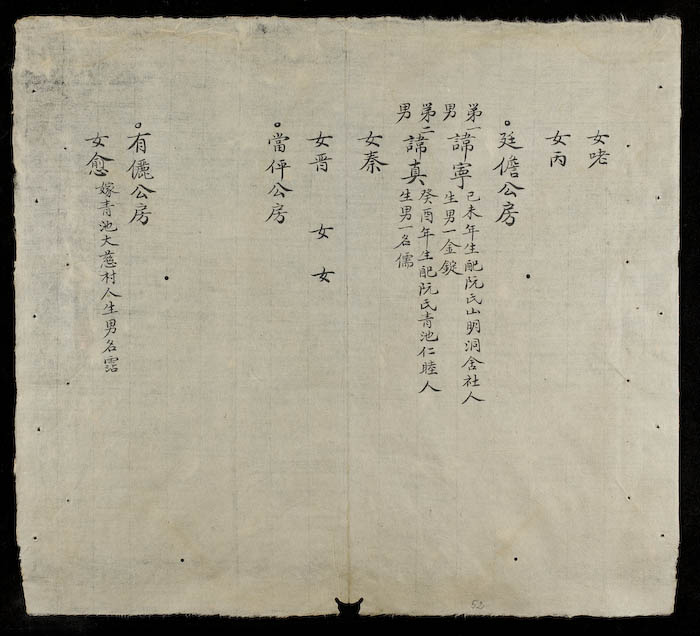 女咾
女丙
廷儋公房
第一男
諱寧 己未年生配阮氏山明洞舍社人
生男一金錠
第二男
諱真 癸酉年生配阮氏青池仁睦人
生男一名儒
女秦
女晋 女 女
當伻公房
有儷公房
女愈 嫁青池大慈村人生男名霑
52